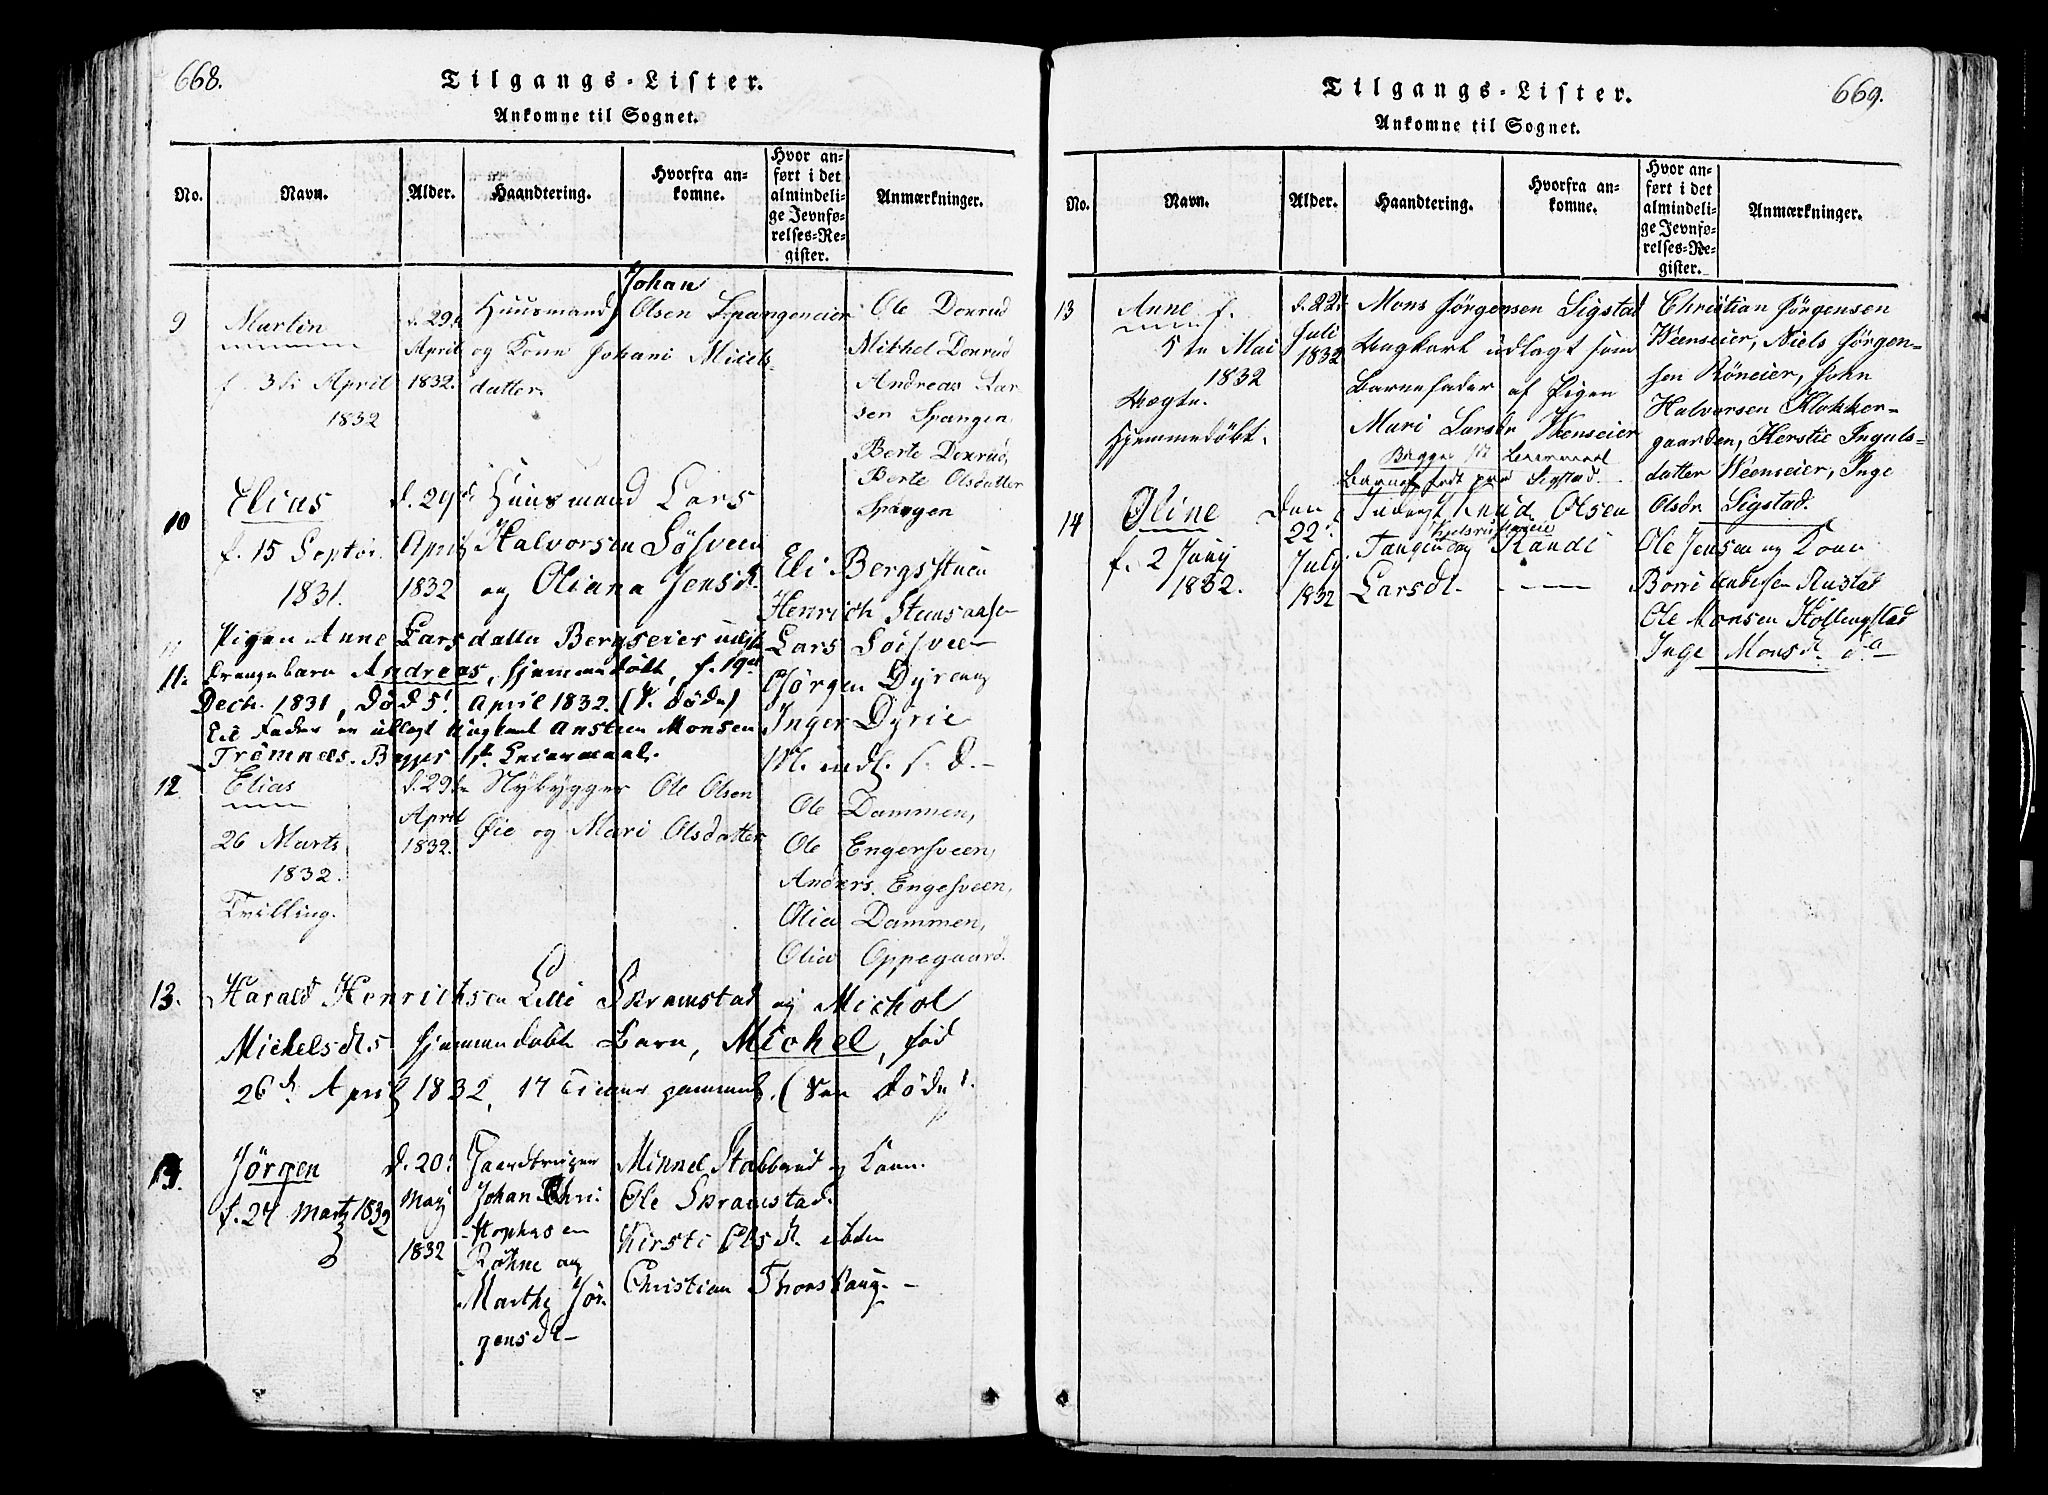 668.
Tilgangs-Lister.
Ankomne til Sognet.
No.
Navn.
Alder.
Haandtering.
Hvorfra an-
komne.
Hvor an-
ført i det
almindeli-
ge Jevnfø-
relses-Re-
gister.
Anmærkninger.
9
Martin
f. 3de April
1832
d. 29de
April
1832.
Johan
Huusmand Olsen Spangeneier
og Kone Johani Mikels-
datter.
Ole Donrud
Mikkel Donrud
Andreas Lar-
sen Spangen
Berte Donrud,
Berte Olsdatter
Spangen
10
Elius
f. 15 Septbr.
1831.
d. 29de
April
1832
Huusmand Lars
Halvorsen Løsveen
og Oliana Jensdt.
Eli Bergsstuen
Henrich
Lars Løisveen
Jørgen
Inger
11.
Pigen Anne Larsdatter Bergseier
Drengebarn Andreas, hjemmedøbt, f. 19de
Decb. 1831, Død 5t April 1832. (V. døde)
Fader er udlagt Ungkarl Ansteen Monsen
Trømnæs. Begges 1st Leiermaal.
12.
Elias
26 Marts
1832.
Tvilling.
d. 29de
April
1832.
Nybygger Ole Olsen
Øie og Mari Olsdatter
Ole Dammen,
Ole Engersveen,
Anders Engesveen,
Olia Dammen,
Olia Oppegaard.
13.
Harald Henrichsen Lille Skramstad og Michel
Michelsdts hjemmedøbte Barn, Michel, fød
26de April 1832, 14 Timer gammel. (See Døde).
Jørgen
f. 24 Martz 1832
d. 20de
May
1832
Gaardbruger
Johan Chri-
stophersen
Røhne og
Marthe Jør-
gensdt
Mikkel Stabberud og Kone.
Ole Skramstad.
Kirsti Olsdt. ibden
Christian Thorshaug.
Tilgangs-Lister.
Ankomne til Sognet.
669.
No.
Navn.
Alder.
Haandtering.
Hvorfra an-
komne.
Hvor an-
ført i det
almindeli-
ge Jevnfø-
relses-Re-
gister.
Anmærkninger.
13
Anne f.
5te Mai
1832
Uægte.
Hjemmedøbt.
d. 22de
Juli
1832
Mons Jørgensen Sigstad
Ungkarl udlagt som
Barnefader af Pigen
Mari Larsdr Weenseier
Begges 1st Leiermaal
Barnet født paa Sigstad.
Christian Jørgensen
Weenseier, Niels Jørgen-
sen Røneier, John
Halvorsen Klokker-
gaarden, Kerstie Inguls-
datter Weenseier, Inge
Olsdr Sigstad.
14
Oline
f. 2 Juny
1832.
Den
22de
July
1832
Inderst Knud Olsen
Tangen og Randi
Larsdt.
Ole Jensen og Kone
Ole Monsen
Inge Monsdt. do